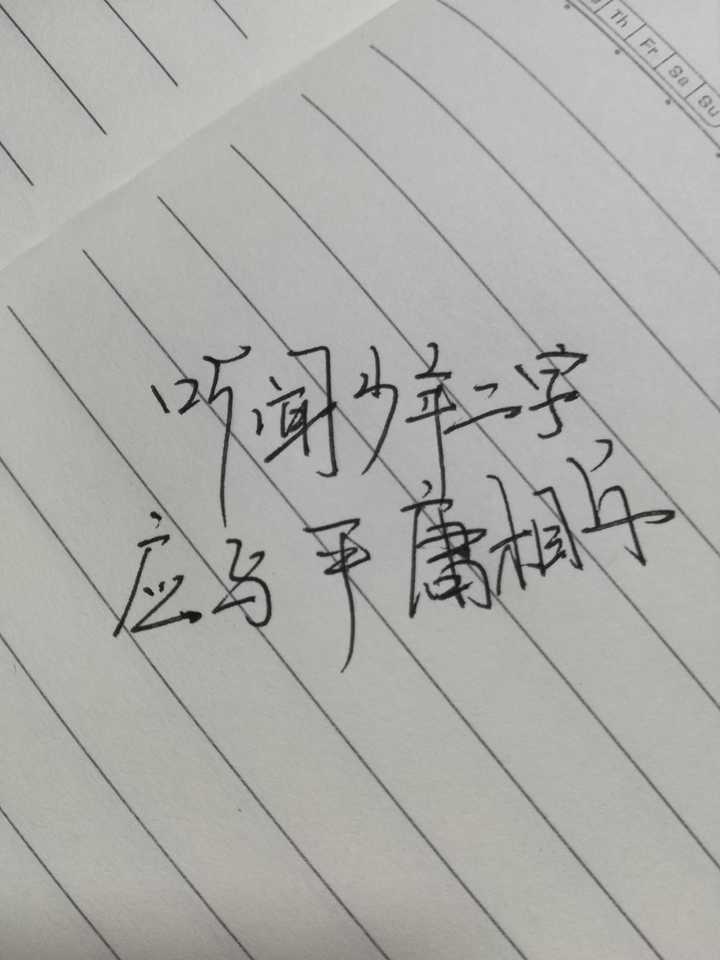 Th Fr Sa Su
听闻少年二字
应与平庸相斥